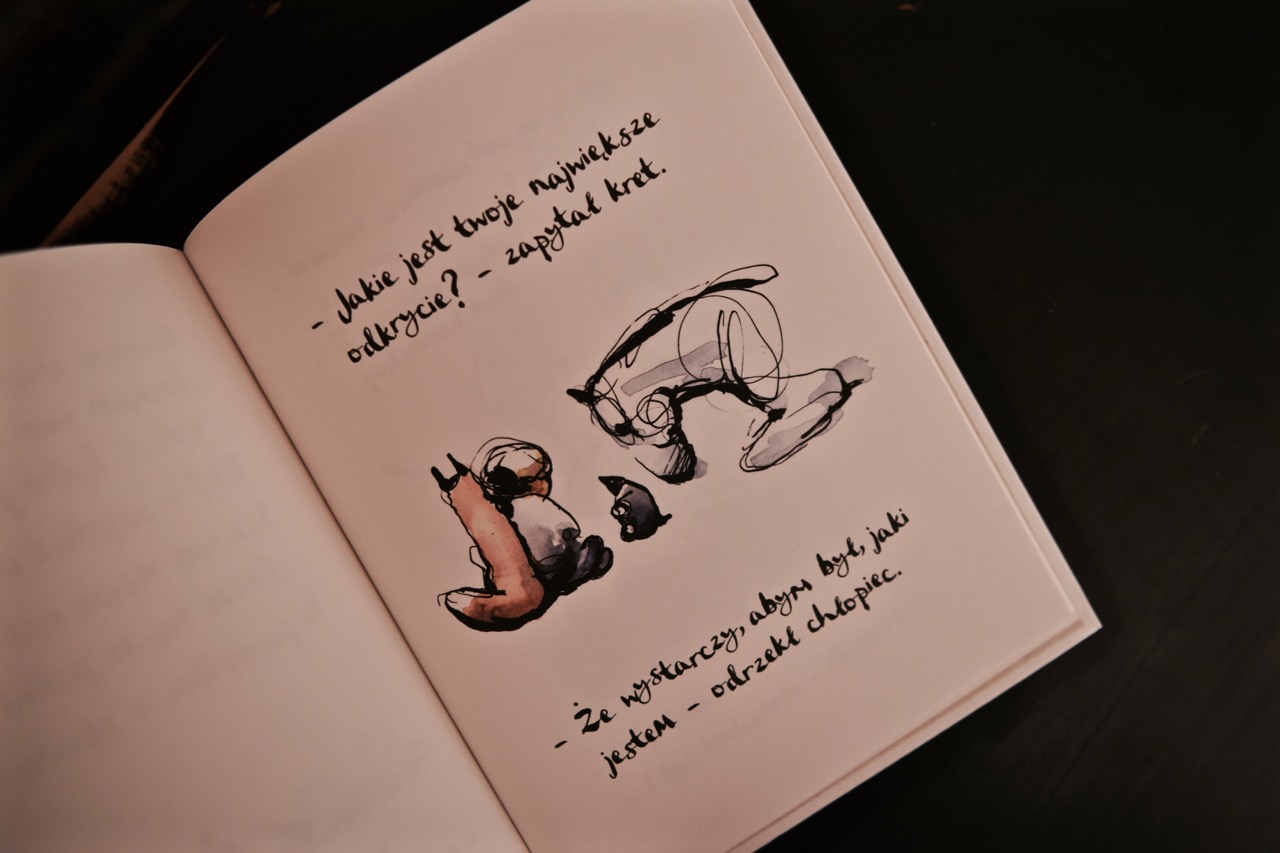 - Jakie jest twoje największe
odkrycie? - zapytał kret.
- Że wystarczy, abym był, jaki
jestem - odrzekł chłopiec.